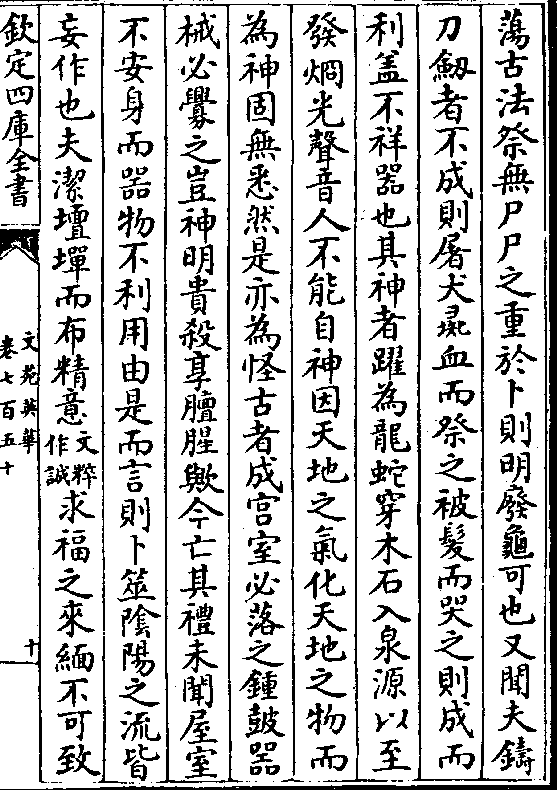 蕩古法祭無尸尸之重於卜則明廢龜可也又聞夫鑄
刀劒者不成則屠犬彘血而祭之被髪而哭之則成而
利盖不祥器也其神者躍為龍蛇穿木石入泉源以至
發烱光聲音人不能自神因天地之氣化天地之物而
為神固無悉然是亦為怪古者成宫室必落之鍾皷器
械必釁之豈神明貴殺享膻腥歟今亡其禮未聞屋室
不安身而器物不利用由是而言則卜筮陰陽之流皆
妄作也夫潔壇墠而布精意文粹作誠求福之來緬不可致
欽定四庫全書
文苑英華
卷七百五十
十